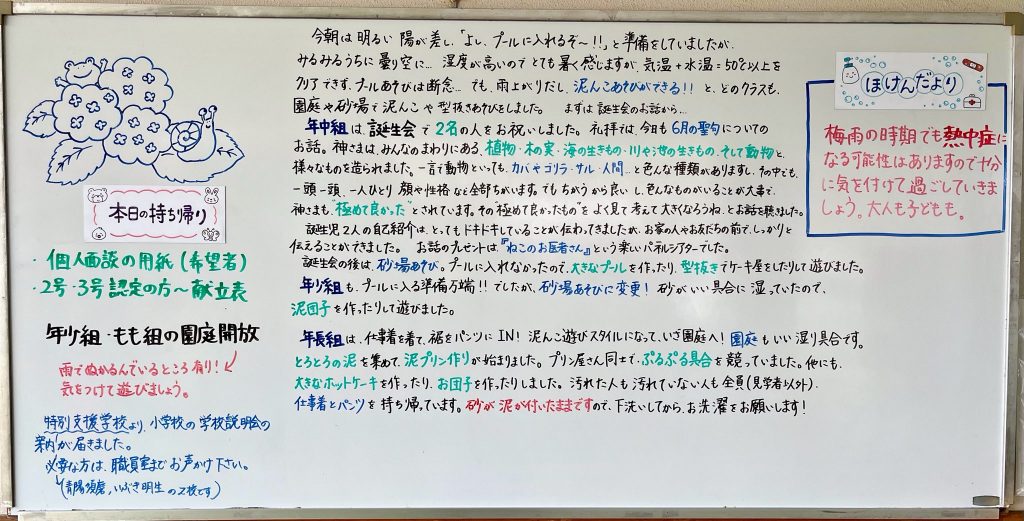 本日の持ち帰り
・個人面談の用紙(希望者)
・2号・3号認定の方〜献立表
年少組・もも組の園庭開放
雨でぬかるんでいるところ有り!
気をつけて遊びましょう。
特別支援学校より、小学校の学校説明会の
案内が届きました。
必要な方は、職員室までお声かけ下さい。
(青陽須磨、いぶき明生の2校です)
今朝は明るい陽が差し、「よし、プールに入れるぞ〜!!」と準備をしていましたが、
みるみるうちに曇り空に… 湿度が高いのでとても暑く感じますが、気温+水温=50℃以上を
クリアできず、プールあそびは断念… でも、雨上がりだし、泥んこあそびができる!!と、どのクラスも、
園庭や砂場で泥んこや型抜きあそびをしました。 まずは誕生会のお話から…
年中組は、誕生会で2名の人をお祝いしました。礼拝では、今日も6月の聖句についての
お話。神さまは、みんなのまわりにある、植物・木の実・海の生きもの・川や池の生きもの、そして動物と、
様々なものを造られました。一言で動物といっても、カバやゴリラ・サル・人間…と色んな種類がありますし、その中でも、
一頭一頭、一人ひとり顔や性格など全部ちがいます。でもちがうから良いし、色んなものがいることが大事で、
神さまも"極めて良かった"とされています。その"極めて良かったもの"をよく見て考えて大きくなろうね、とお話を聴きました。
誕生児2人の自己紹介は、とってもドキドキしていることが伝わってきましたが、お家の人やお友だちの前で、しっかりと
伝えることができました。 お話のプレゼントは『ねこのお医者さん』という楽しいパネルシアターでした。
誕生会の後は、砂場あそび。プールに入れなかったので、大きなプールを作ったり、型抜きでケーキ屋をしたりして遊びました。
年少組も、プールに入る準備万端!!でしたが、砂場あそびに変更! 砂がいい具合に湿っていたので、
泥団子を作ったりして遊びました。
年長組は、仕事着を着て、裾をパンツにIN! 泥んこ遊びスタイルになって、いざ園庭へ! 園庭もいい湿り具合です。
とろとろの泥を集めて、泥プリン作りが始まりました。プリン屋さん同士で、ぷるぷる具合を競っていました。他にも、
大きなホットケーキを作ったり、お団子を作ったりしました。汚れた人も汚れていない人も全員(見学者以外)、
仕事着とパンツを持ち帰っています。砂が泥が付いたままですので、下洗いしてから、お洗濯をお願いします!
ほけんだより
梅雨の時期でも熱中症に
なる可能性はありますので十分
に気を付けて過ごしていきま
しょう。大人も子どもも。